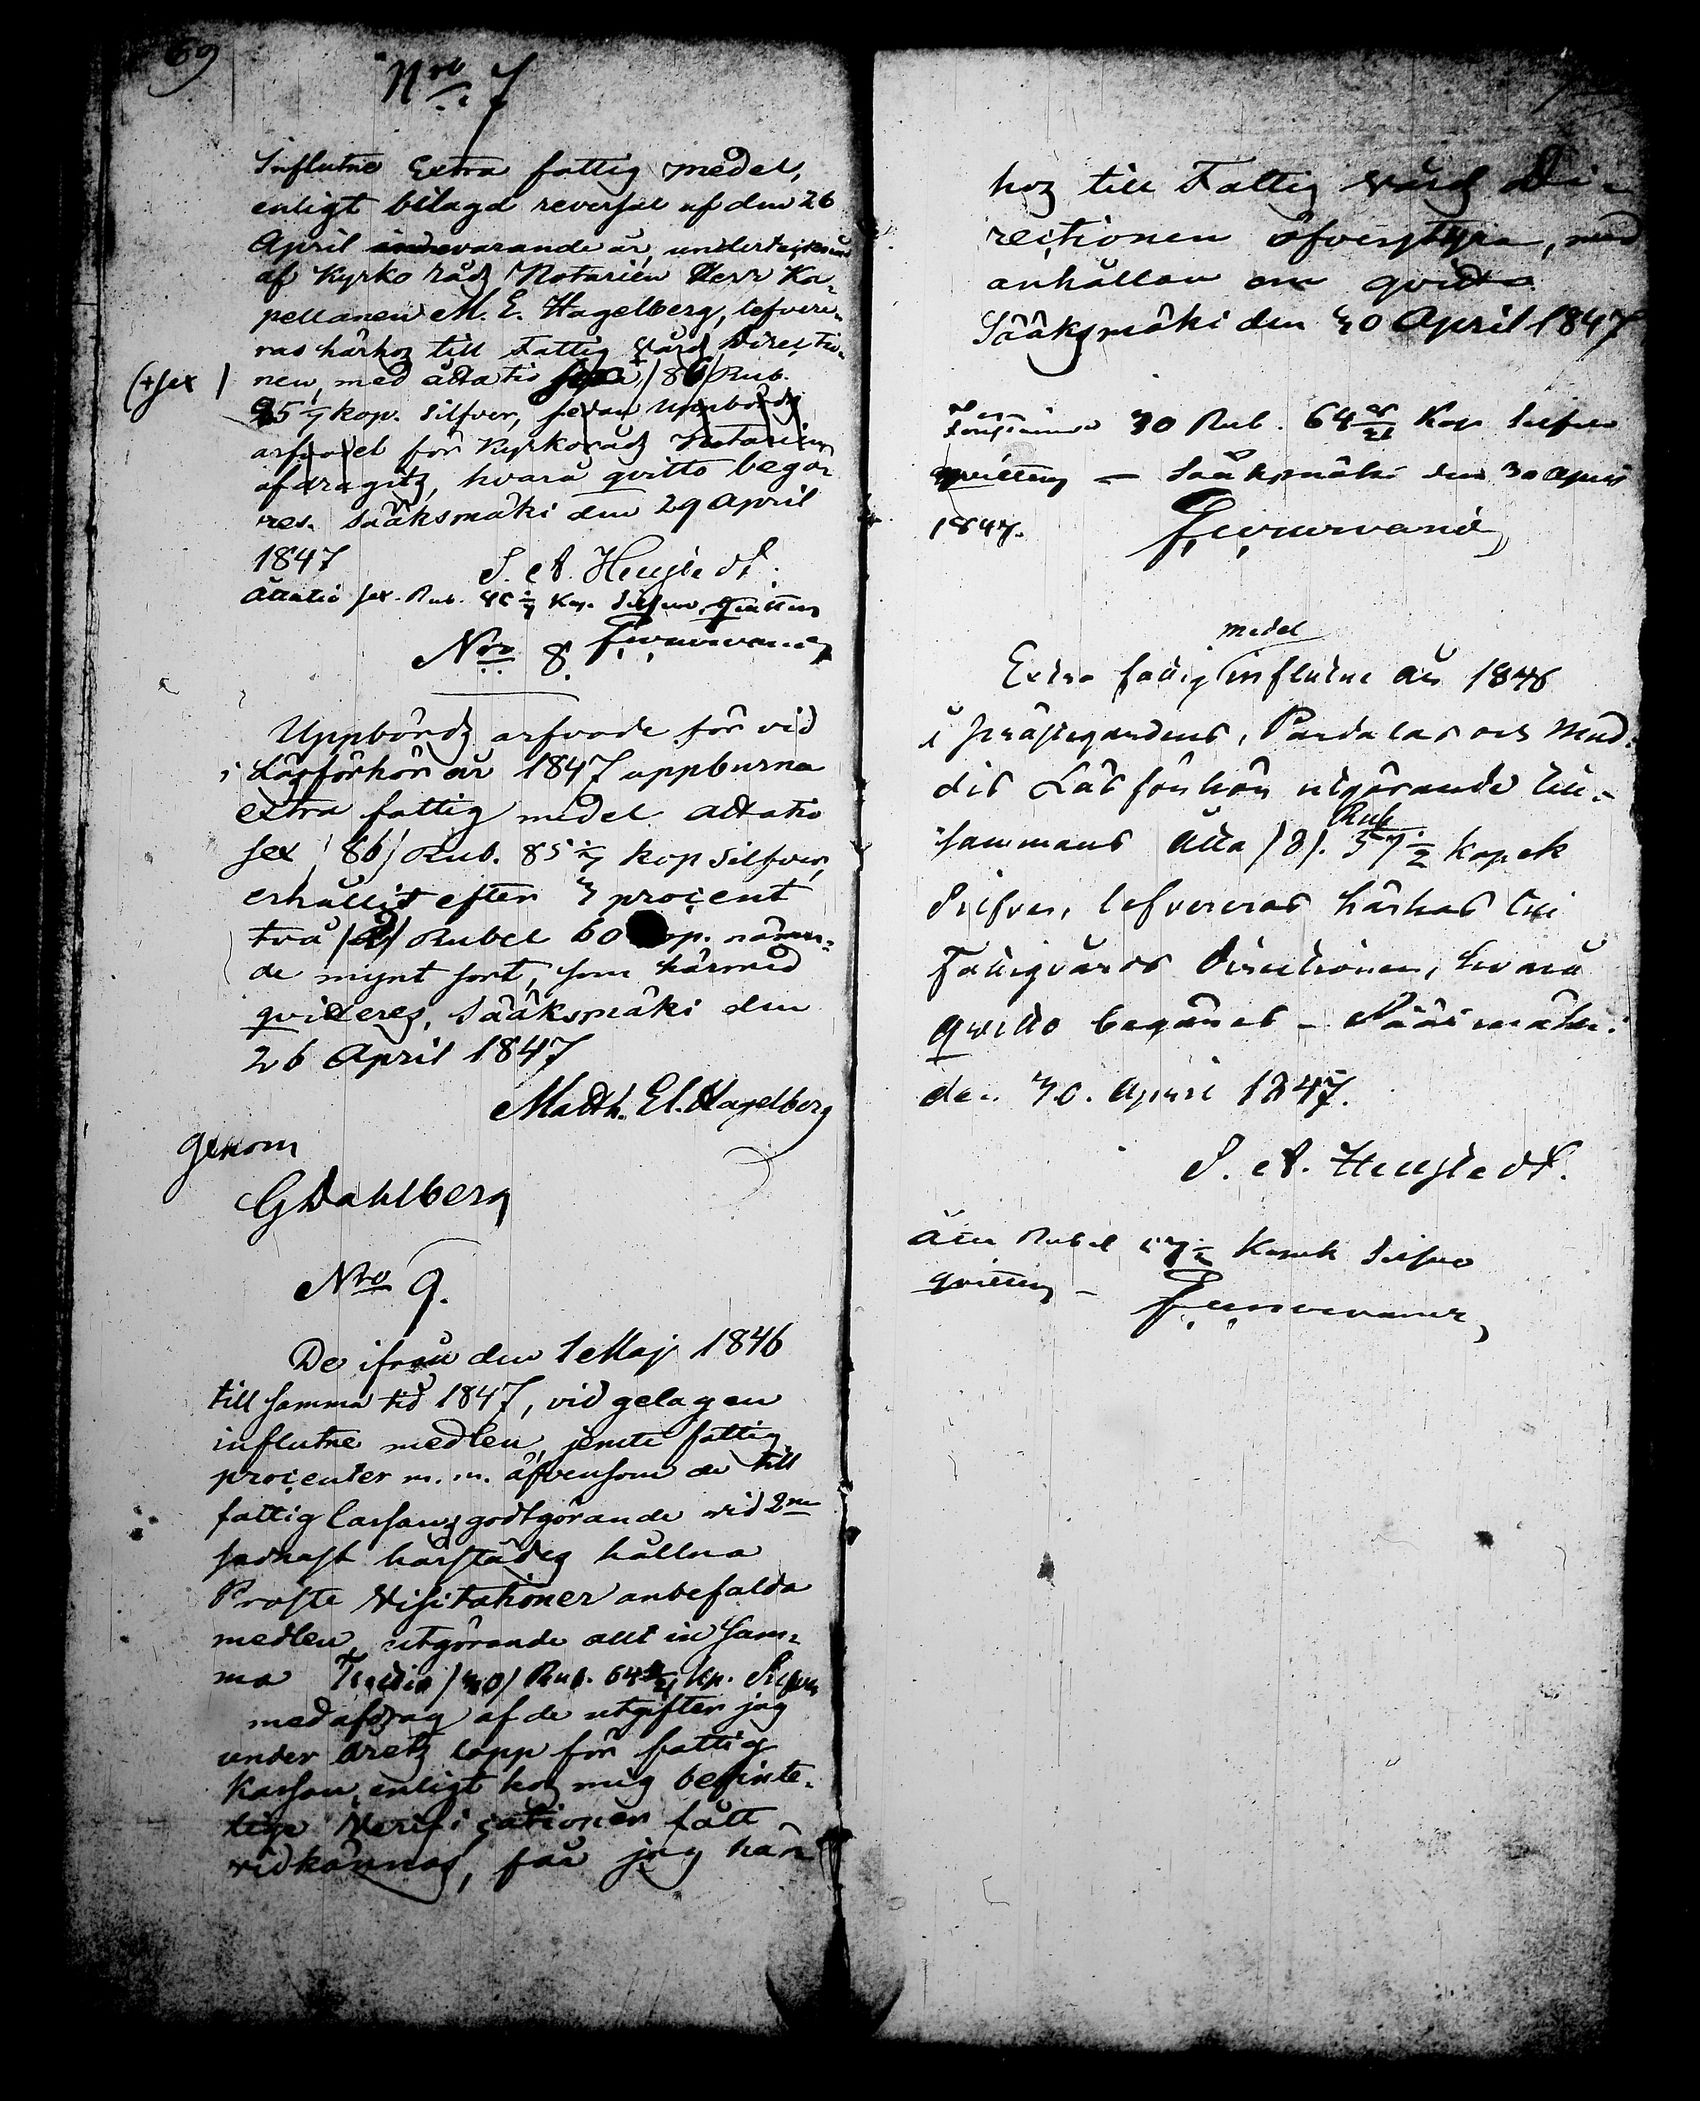 69
Nro 7
Influtne Extra fattig medel,
enligt bilagd reversal af den 26
April innevarande år, undertecknad
af Kyrko råds Notarien Herr Ka-
pellanen M. E. Hagelberg, lefvere-
ras härhos till Fattig Vård Directio-
(+sex) nen, med åttatio /86/ Rub.
85 1/7 kop. Silfver, sedan Uppbörds
arfvodet för Kyrkoråds Notarien
afdragits, hvarå qvitto begä-
res. Sääksmäki den 29 April
1847
Åttatio sex Rub. 85 1/7 Kop. Silfver qvitteras
Nro 8.
Uppbörds arfvode för vid
Läsförhör år 1847 uppburna
extra fattig medel åttatio
sex /86/ Rub. 85 1/7 kop Silfver,
erhållit efter 3 procent
två /2/ Rubel 60 kop. nämn-
de mynt sort, som härmed
qvitteres, Sääksmäki den
26 April 1847
Matth. El. Hagelberg
genom
G Dahlberg
Nro 9.
De ifrån den 1 Maj 1846
till samma tid 1847, vid gelagen
influtne medlen, jemte fattig
procenter m. m. äfvensom de till
fattig Cassans godtgörande vid 2ne
sednast härstädes hållna
Proste Visitationer anbefalda
medlen, utgörande allt in sam-
ma Trettio /30/ Rub. 64 kp. Silfver
med afdrag af de utgifter jag
under årets lopp för fattig
Kassan, enligt hos mig befinte-
lige Verificationer fått
vidkännas, får jag här-
hos till Fattig vård Di-
rectionen öfverstyra, med
anhållan om qvitto
Sääksmäki den 30 April 1847
30 Rub. 64 Kop Silfver
qvitteras — Sääksmäki den 30 April
1847.
medel
Extra fattig influtne år 1846
i Prästegårdens, Pardalas och
dis Läsförhör utgörande till-
Rub
sammans Åtta /8/. 57 1/2 kopek
Silfver, lefvereras härhos till
Fattigvårds Directionen, hvarå
qvitto begäres — Sääksmäki
den 30. April 1847.
Åtta Rubel 57 1/2 Kopek Silfver
qvitteras —